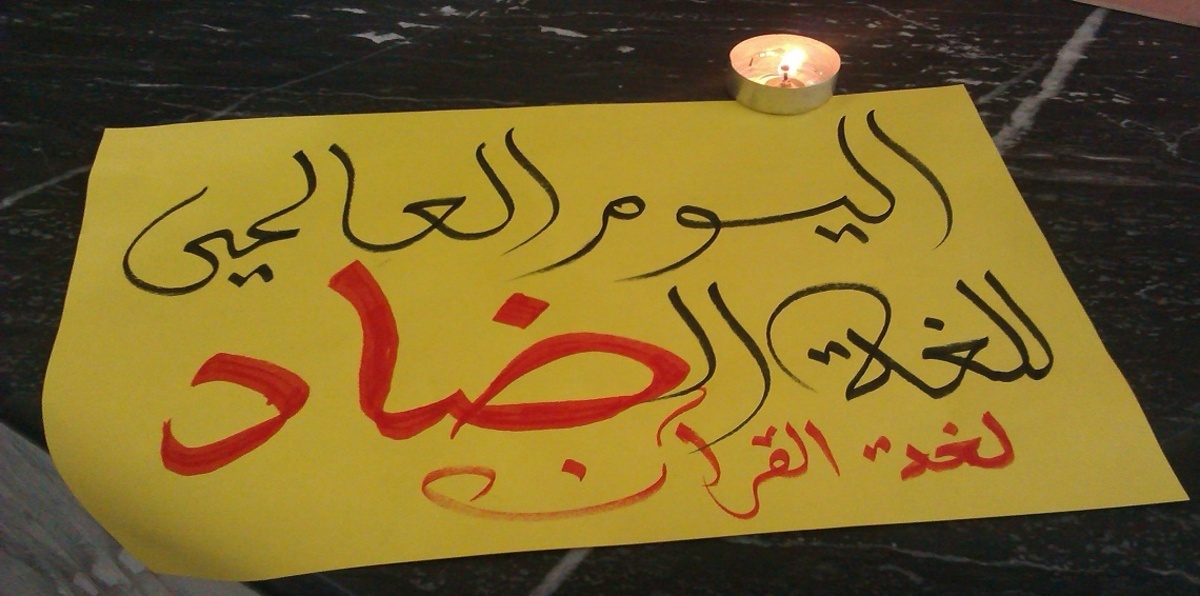 اليوم العالمي
للغة الضاد
لغة القرآن